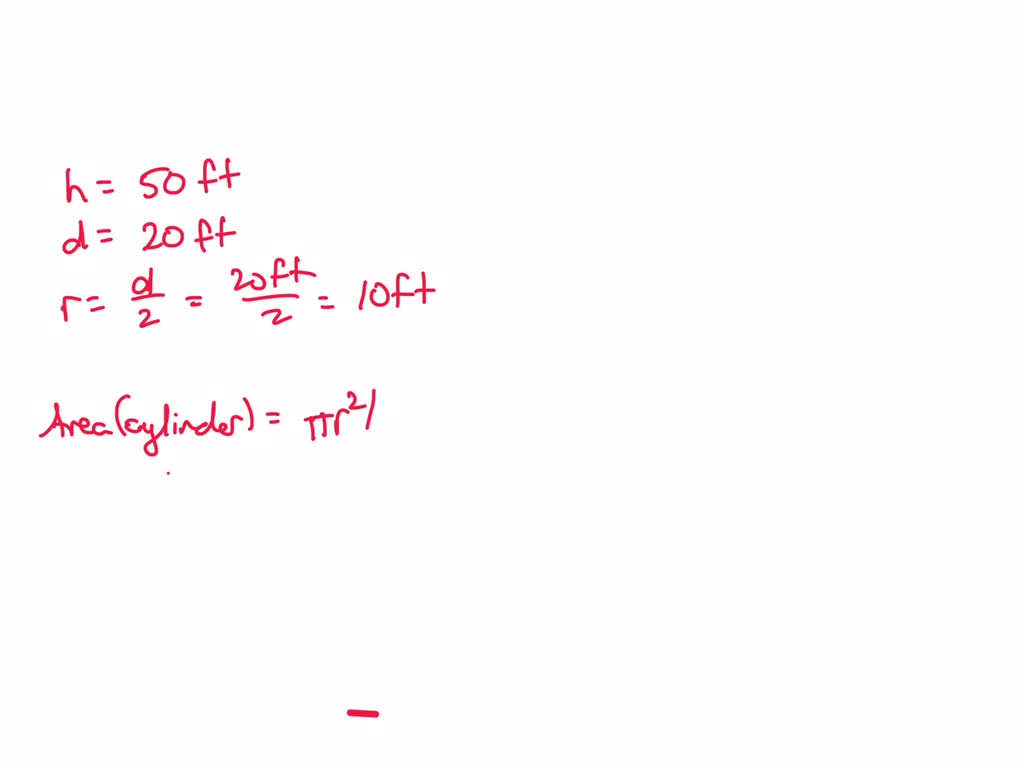 h = 50 ft
d = 20 ft
r = d/2 = 20ft/2 = 10ft
Area(cylinder) = πr²